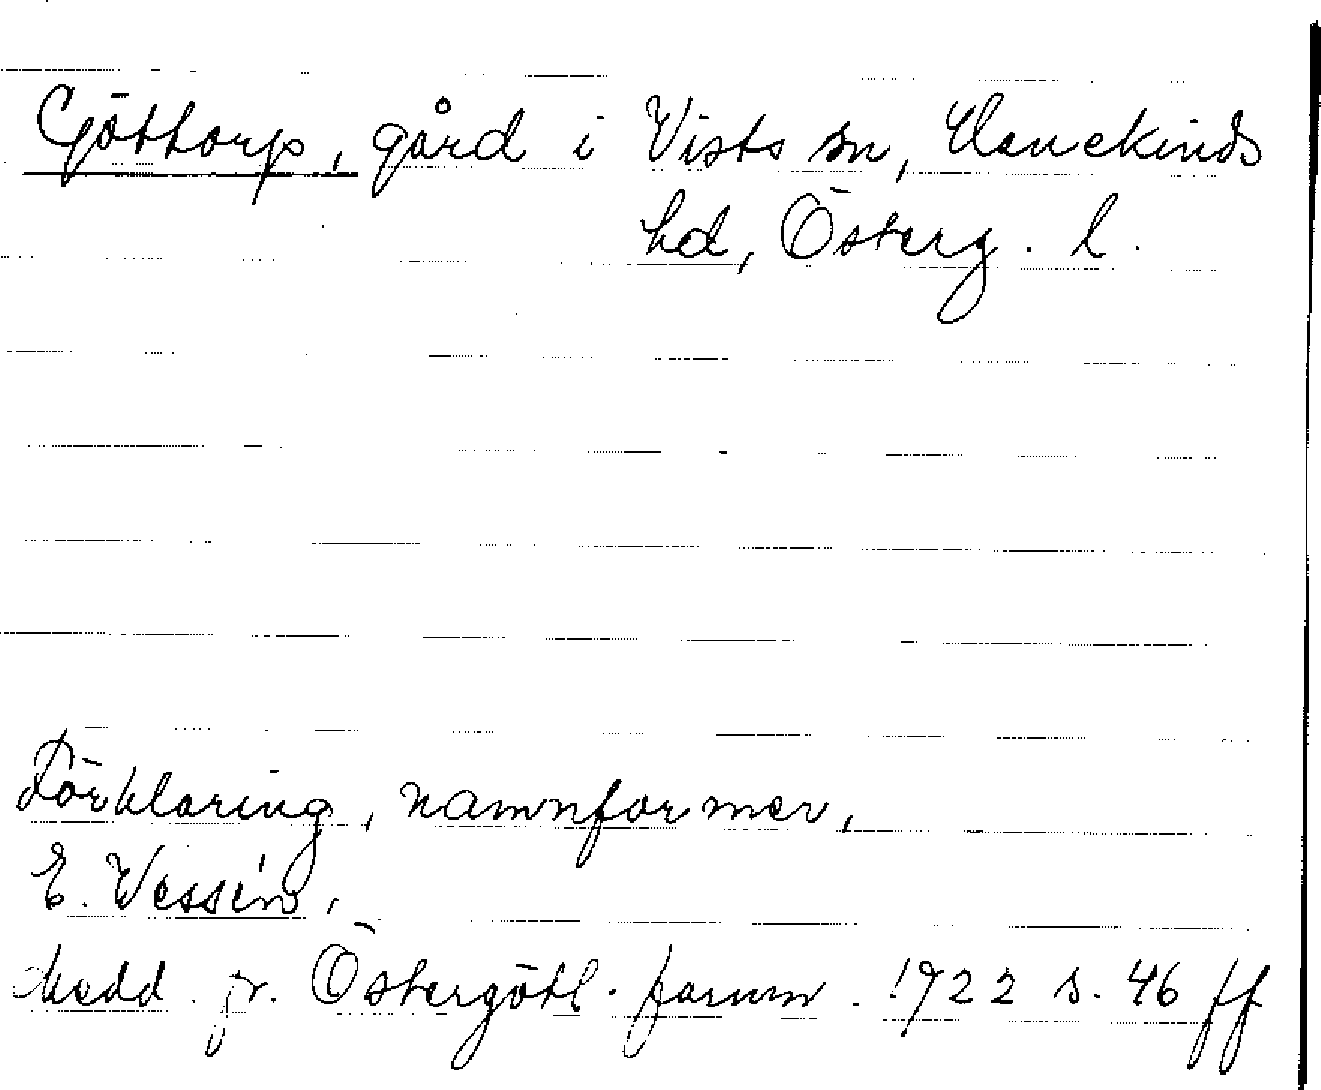 Göttorp, gård i Vists sn, Hanekinds
hd, Österg. l.
Förklaring, namnformer,
E. Wessén,
Medd. fr. Östergötl. fornm. 1922 s. 46 ff